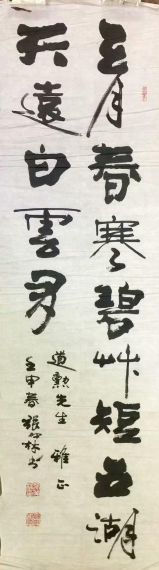 三月春寒碧艸短五湖
天遠白雲多
道勲先生 雅正
壬申春